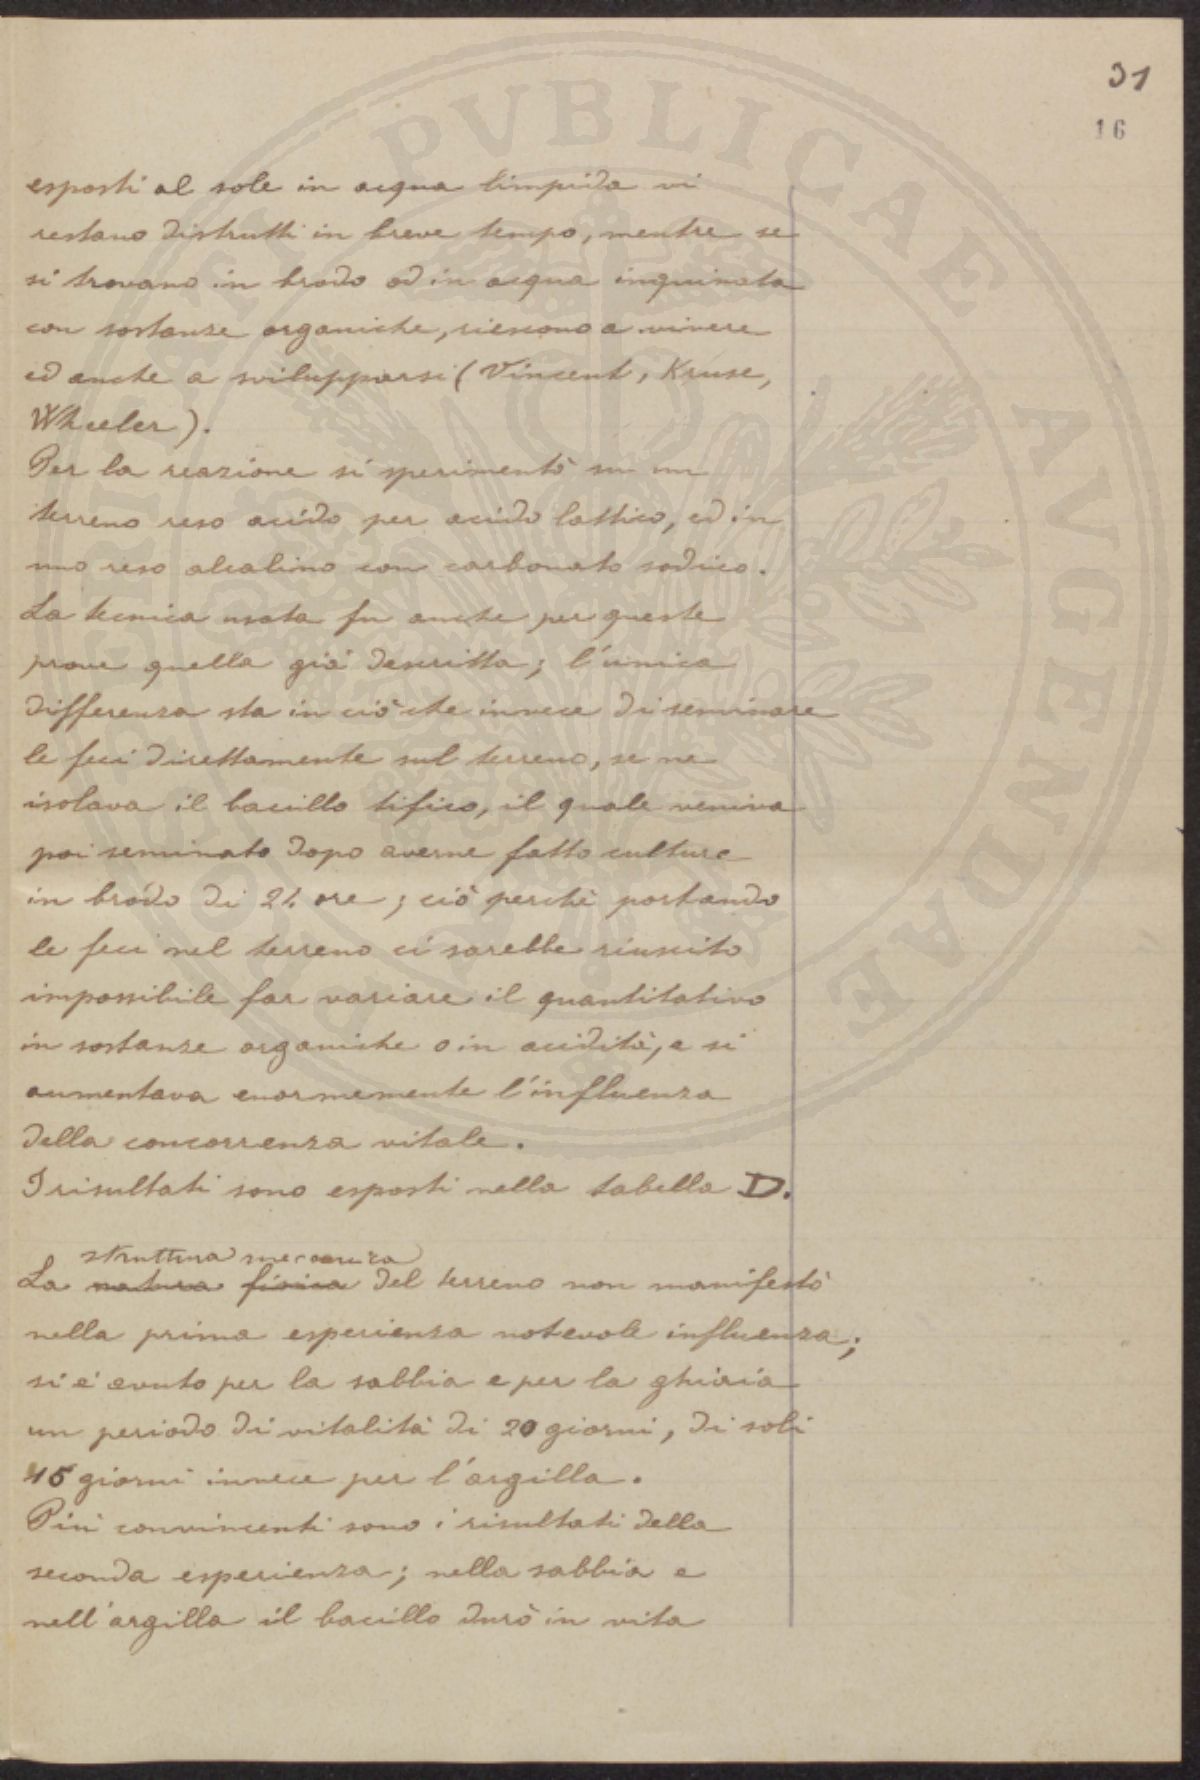 31
16
esposti al sole in acqua limpida vi
restano distrutti in breve tempo, mentre se
si trovano in brodo od in acqua inquinata
con sostanze organiche, riescono a vivere
ed anche a svilupparsi (Vincent, Kruse,
Wheeler).
Per la reazione si sperimentò su un
terreno reso acido per acido lattico, ed in
uno reso alcalino con carbonato sodico.
La tecnica usata fu anche per queste
prove quella già descritta; l'unica
differenza sta in ciò che invece di seminare
le feci direttamente sul terreno, se ne
isolava il bacillo tifico, il quale veniva
poi seminato dopo averne fatto culture
in brodo di 24 ore; ciò perchè portando
le feci nel terreno ci sarebbe riuscito
impossibile far variare il quantitativo
in sostanze organiche o in acidità, e si
aumentava enormemente l'influenza
della concorrenza vitale.
I risultati sono esposti nella tabella D.
struttura meccanica
La natura fisica del terreno non manifestò
nella prima esperienza notevole influenza;
si è avuto per la sabbia e per la ghiaia
un periodo di vitalità di 20 giorni, di soli
15 giorni invece per l'argilla.
Più convincenti sono i risultati della
seconda esperienza; nella sabbia e
nell'argilla il bacillo durò in vita
PVBLICAE AVGENDAE